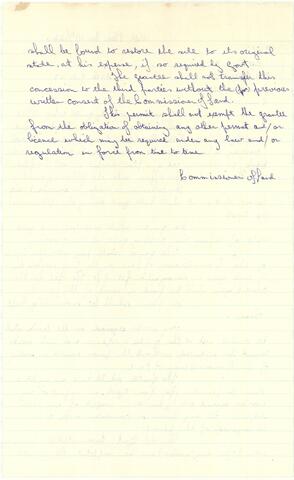 shall be found to restore the site to its original
state, at his expense, if so required by Govt.
The grantee shall not transfer this
concession to the third parties without the (pr) previous
written consent of the Commissioner of Land.
This permit shall not exempt the grantee
from the obligation of obtaining any other permit and/or
licence which may be required under any law and/or
regulation in force from time to time
Commissioner of Land